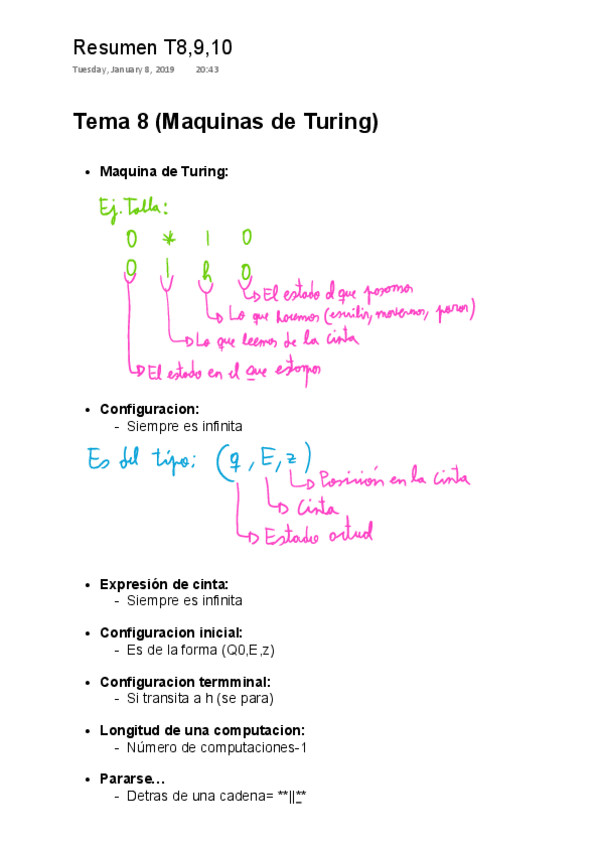 Resumen T8,9,10
Tuesday, January 8, 2019 20:43
Tema 8 (Maquinas de Turing)
• Maquina de Turing:
Ej. Talla:
0 * 1 0
0 1 h 0
El estado al que pasamos
Lo que hacemos (escribir, movernos, parar)
Lo que leemos de la cinta
El estado en el que estamos
• Configuracion:
- Siempre es infinita
Es del tipo: (q, E, z)
Posición en la cinta
Cinta
Estado actual
• Expresión de cinta:
- Siempre es infinita
• Configuracion inicial:
- Es de la forma (Q0,E,z)
• Configuracion termminal:
- Si transita a h (se para)
• Longitud de una computacion:
- Número de computaciones-1
• Pararse...
- Detras de una cadena= **||**